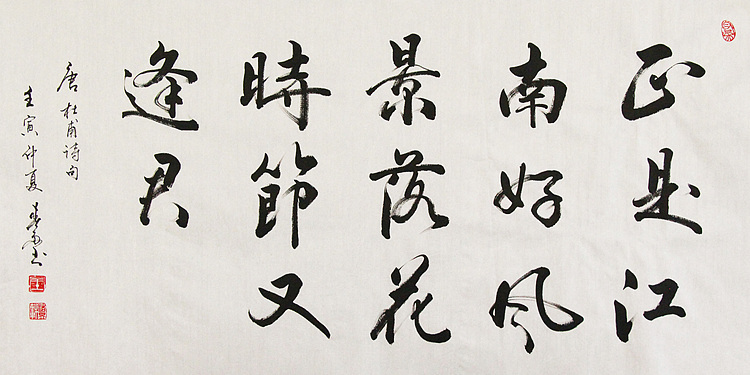 正是江
南好风
景落花
時節又
逢君
唐杜甫诗句
壬寅仲夏